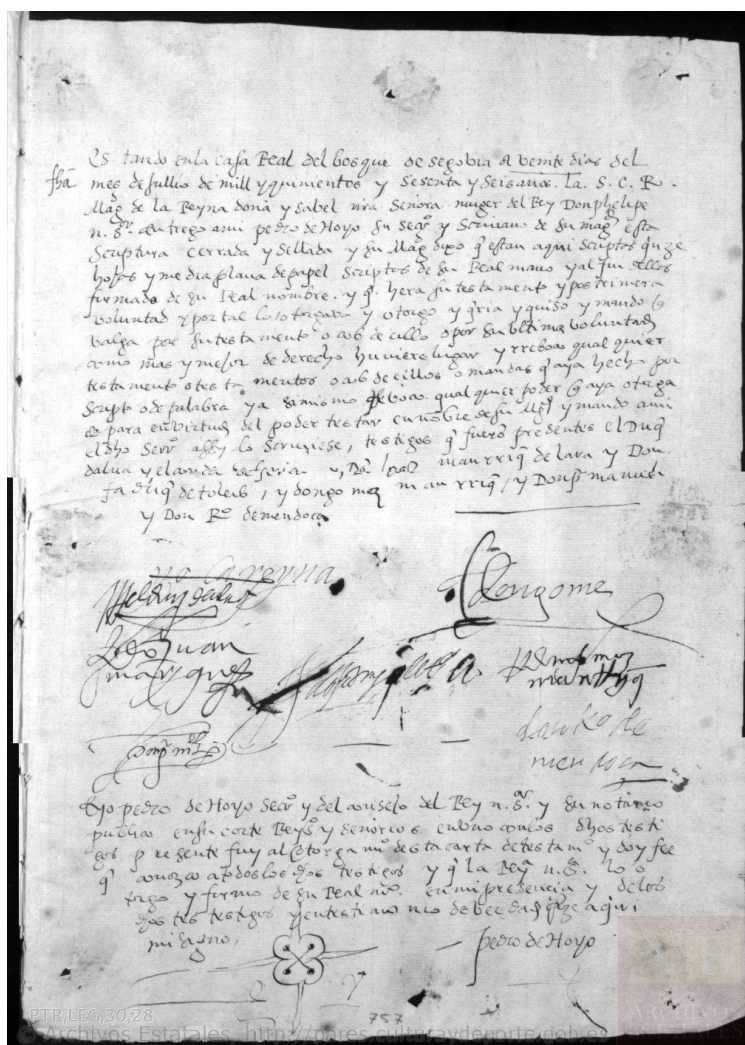 Estando en la casa Real del bosque de segobia a veinte dias del
fha
mes de Jullio de mill y quinientos y sesenta y seis años. la. S. C. R.
Mag. de la Reyna doña ysabel nra señora. muger del Rey Don phelipe
n. Sr. entrego a mi pedro de Hoyo su secr. y scrivano de su mag. esta
scriptura cerrada y sellada y su Mag. dixo q estan aqui scriptas quinze
hojas y media plana de papel scriptas de su Real mano y al fin dellos
firmada de su Real nombre. y q. hera su testamento y postrimera
voluntad y por tal lo otorgava y otorgo y q̄ria y quiso y mando q
valga por su testamento o cobdecillo o por su ultima voluntad
como mas y mejor de derecho huviere lugar y rreboco qual quier
testamento o testamentos o cobdecillos o mandas q aya hecho por
scripto o de palabra y asimismo Reboco qual quier poder q aya otorga
do para en virtud del poder testar en nōbre de su Mgd. y mando a mi
el dho Secr. assy lo screviese, testigos q fuerō presentes el Duq̄
dalva y el conde de feria y Don Juan manrriq̄ de lara y Don
fadriq̄ de toledo, y don gomez manrriq̄, y Don fr. manuel
y Don R.º de mendoça
yo la reyna
El conde gome
don Juan
manrrique
don gomez
manrriq̄
mendoça
E yo pedro de Hoyo Secr. y del consejo del Rey n. Sr. y su notario
publico en su corte Reyᵒˢ y señorios en uno con los dhos testi
gos presente fuy al otorgamº desta carta de testamº y doy fee
q̄ conozco a todos los dhos testigos y q̄ la Reyª n. Sª. lo o
torgo y firmo de su Real nōe. en mi presencia y de los
dhos testigos y en testimonio de verdad fize aqui
mi signo,
pedro de Hoyo
757
PTR,LEG,30,28
© Archivos Estatales http://pares.culturaydeporte.gob.es
ARCHIVOS
ESTATALES